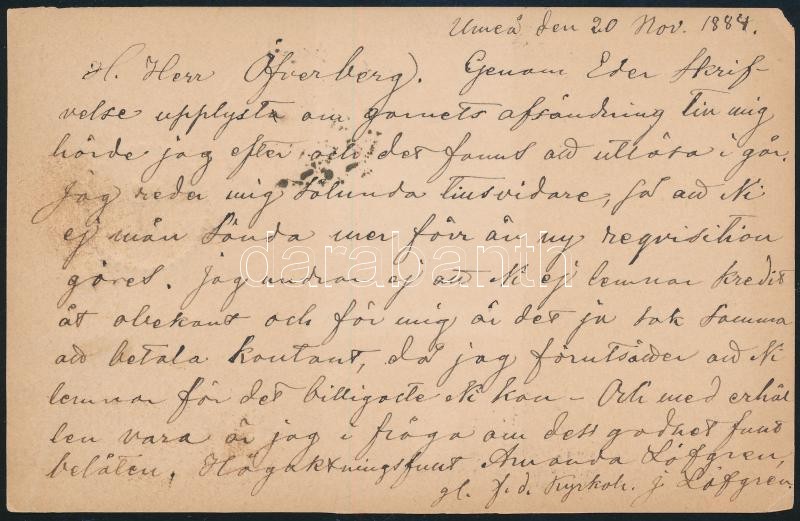 Umeå den 20 Nov. 1884.
H. Herr Öfverberg). Genom Eder skrif-
velse upplyst om garnets afsändning till mig
hörde jag efter och det fanns att utlösa i går.
Jag reder mig sålunda tillsvidare, så att Ni
ej mån sända mer förr än ny reqvisition
göres. Jag undrar ej att Ni ej lemnar kredit
åt obekant och för mig är det ju sak samma
att betala kontant, då jag förutsätter att Ni
lemnar för det billigaste Ni kan – Och med erhål
len vara är jag i fråga om dess godhet fullt
belåten. Högaktningsfullt Amanda Löfgren,
gl. f. d. Kyrkoh. J. Löfgren.
darabanth